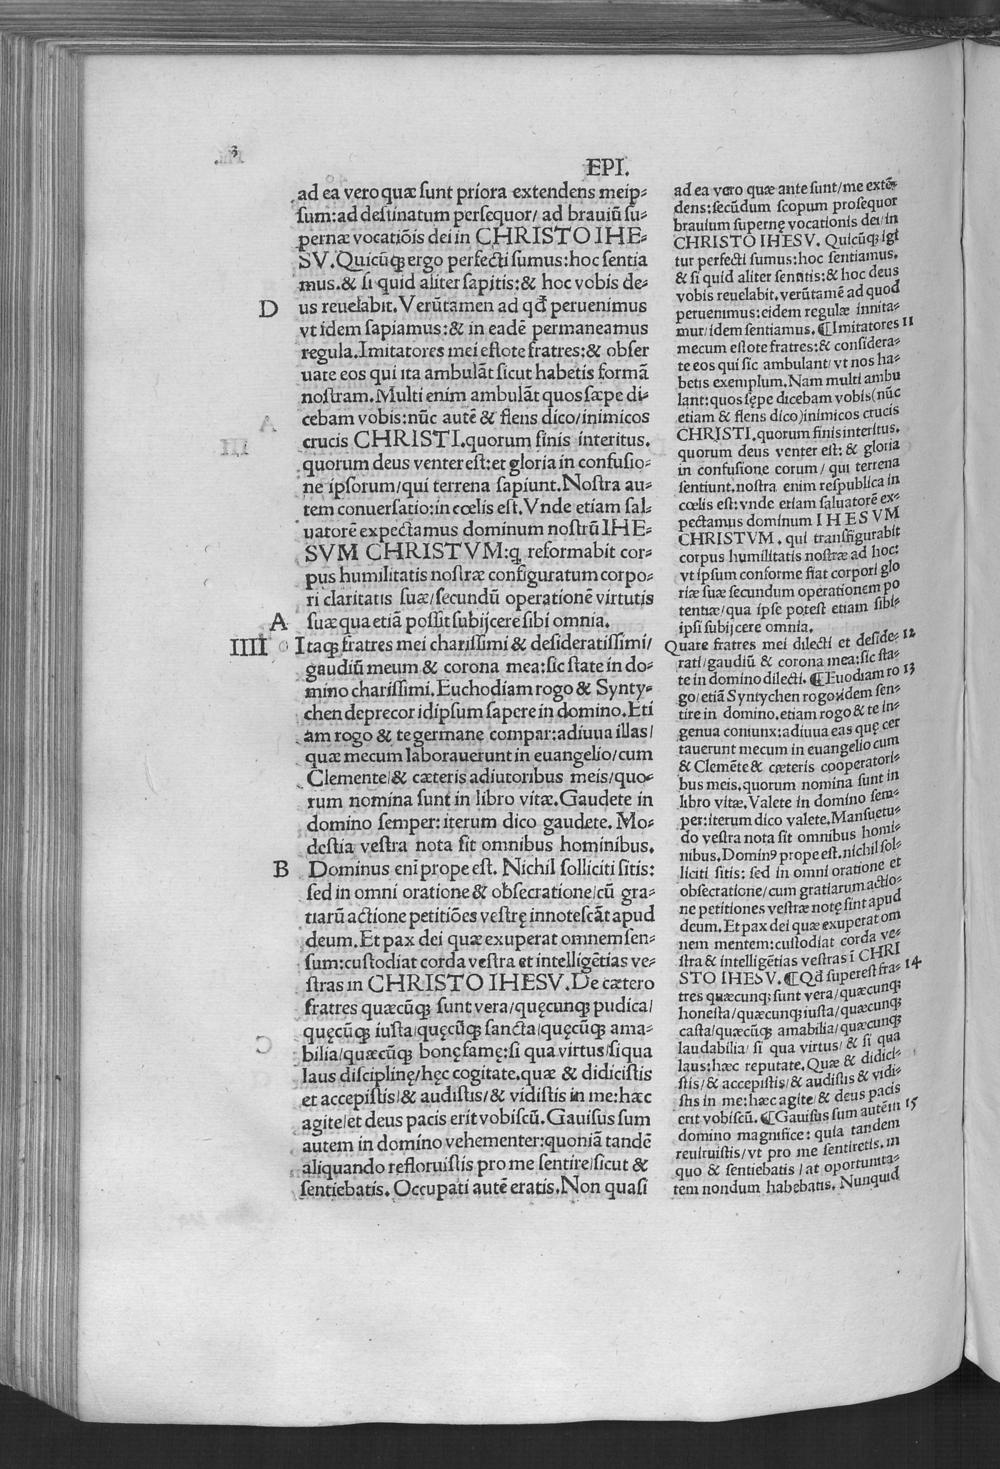 EPI.
ad ea vero quæ sunt priora extendens meip-
sum:ad destinatum persequor/ ad braviũ su-
pernæ vocatiõis dei in CHRISTO IHE-
SV.Quicũqꝫ ergo perfecti sumus:hoc sentia
mus.& si quid aliter sapitis:& hoc vobis de-
D
us reuelabit.Verũtamen ad qđ peruenimus
vt idem sapiamus:& in eadẽ permaneamus
regula.Imitatores mei estote fratres:& obser
uate eos qui ita ambulãt sicut habetis formã
nostram.Multi enim ambulãt quos sæpe di-
cebam vobis:nũc autẽ & flens dico/inimicos
crucis CHRISTI.quorum finis interitus.
quorum deus venter est:et gloria in confusio-
ne ipsorum/qui terrena sapiunt.Nostra au-
tem conuersatio:in cœlis est.Vnde etiam sal-
uatorẽ expectamus dominum nostrũ IHE-
SVM CHRISTVM:q reformabit cor-
pus humilitatis nostræ configuratum corpo-
ri claritatis suæ/secundũ operationẽ virtutis
A
suæ qua etiã possit subijcere sibi omnia.
IIII
Itaqꝫ fratres mei charissimi & desideratissimi/
gaudiũ meum & corona mea:sic state in do-
mino charissimi.Euchodiam rogo & Synty-
chen deprecor idipsum sapere in domino.Eti
am rogo & te germane compar:adiuua illas/
quæ mecum laborauerunt in euangelio/cum
Clemente/& cæteris adiutoribus meis/quo-
rum nomina sunt in libro vitæ.Gaudete in
domino semper:iterum dico gaudete. Mo-
destia vestra nota sit omnibus hominibus.
B
Dominus eni prope est. Nichil solliciti sitis:
sed in omni oratione & obsecratione/cũ gra-
tiarũ actione petitiões vestrę innotescãt apud
deum.Et pax dei quæ exuperat omnem sen-
sum:custodiat corda vestra et intelligẽtias ve-
stras in CHRISTO IHESV.De cætero
fratres quæcũqꝫ sunt vera/quęcunqꝫ pudica/
quęcũqꝫ iusta/quęcũqꝫ sancta/quęcũqꝫ ama-
C
bilia/quæcũqꝫ bonę famę:si qua virtus/si qua
laus disciplinę/hęc cogitate.quæ & didicistis
et accepistis/& audistis/& vidistis in me:hæc
agite/et deus pacis erit vobiscũ.Gauisus sum
autem in domino vehementer:quoniã tandẽ
aliquando refloruistis pro me sentire/sicut &
sentiebatis.Occupati autẽ eratis.Non quasi
ad ea vero quæ ante sunt/me extẽ-
dens:secũdum scopum prosequor
brauium supernę vocationis dei/in
CHRISTO IHESV. Quicũqꝫ igi
tur perfecti sumus:hoc sentiamus.
& si quid aliter sentitis:& hoc deus
vobis reuelabit.verũtamẽ ad quod
peruenimus:eidem regulæ innita-
mur/idem sentiamus.¶Imitatores 11
mecum estote fratres:& considera-
te eos qui sic ambulant/vt nos ha-
betis exemplum.Nam multi ambu
lant:quos sępe dicebam vobis(nũc
etiam & flens dico)inimicos crucis
CHRISTI.quorum finis interitus.
quorum deus venter est: & gloria
in confusione eorum/ qui terrena
sentiunt.nostra enim respublica in
cœlis est:vnde etiam saluatorẽ ex-
pectamus dominum IHESVM
CHRISTVM. qui transfigurabit
corpus humilitatis nostræ ad hoc:
vt ipsum conforme fiat corpori glo
riæ suæ secundum operationem po
tentiæ/qua ipse potest etiam sibi-
ipsi subijcere omnia.
Quare fratres mei dilecti et deside- 12
rati/gaudiũ & corona mea:sic sta-
te in domino dilecti.¶Euodiam ro 13
go/etiã Syntychen rogo:idem sen-
tire in domino.etiam rogo & te in-
genua coniunx:adiuua eas quę cer
tauerunt mecum in euangelio cum
& Clemẽte & cæteris cooperatori-
bus meis.quorum nomina sunt in
libro vitæ.Valete in domino sem-
per:iterum dico valete.Mansuetu-
do vestra nota sit omnibus homi-
nibus.Dominꝰ prope est.nichil sol-
liciti sitis: sed in omni oratione et
obsecratione/cum gratiarum actio-
ne petitiones vestræ notę sint apud
deum.Et pax dei quæ exuperat om
nem mentem:custodiat corda ve-
stra & intelligẽtias vestras ĩ CHRI
STO IHESV.¶Qđ superest fra- 14
tres quæcunqꝫ sunt vera/quæcunqꝫ
honesta/quæcunqꝫ iusta/quæcunqꝫ
casta/quæcũqꝫ amabilia/quæcunqꝫ
laudabilia/ si qua virtus/ & si qua
laus:hæc reputate.Quæ & didici-
stis/& accepistis/& audistis & vidi-
stis in me:hæc agite/& deus pacis
erit vobiscũ.¶Gauisus sum autẽ in 15
domino magnifice: quia tandem
reuiruistis/vt pro me sentiretis.in
quo & sentiebatis/at oportunita-
tem nondum habebatis.Nunquid